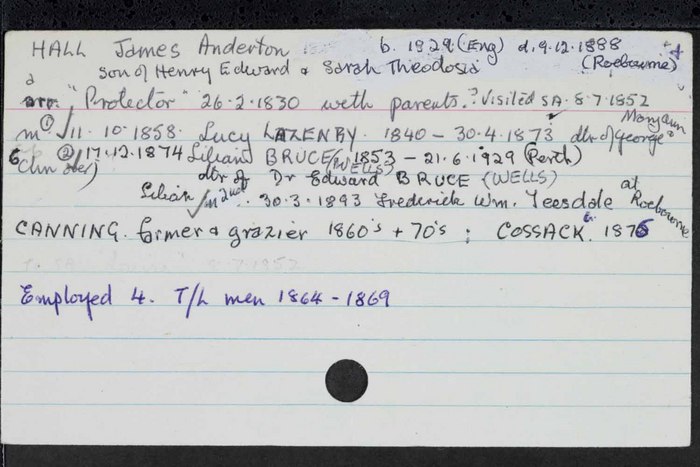 HALL James Anderton b. 1829 (Eng) d. 9.12.1888
son of Henry Edward & Sarah Theodosia (Roebourne)
arr. "Protector" 26.2.1830 with parents. ? Visited SA. 8.7.1852
m ① 11.10.1858. Lucy LAZENBY. 1840 - 30.4.1873 dtr of George & Maryann
② 17.12.1874 Lilian BRUCE (WELLS) 1853 - 21.6.1929 (Perth)
dtr of Dr Edward BRUCE (WELLS)
Lilian m 2nd .. 30.3.1893 Frederick Wm. Teesdale at Roebourne
CANNING. farmer & grazier 1860's + 70's ; COSSACK. 1876
Employed 4. T/L men 1864 - 1869